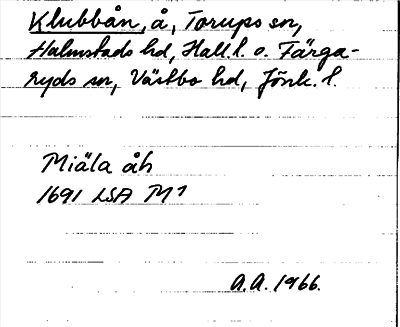 Klubbån, å, Torups sn,
Halmstads hd, Hall. l. o. Färga-
ryds sn, Västbo hd, Jönk. l.
Miäla åh
1691 LSA M1
A.A. 1966.